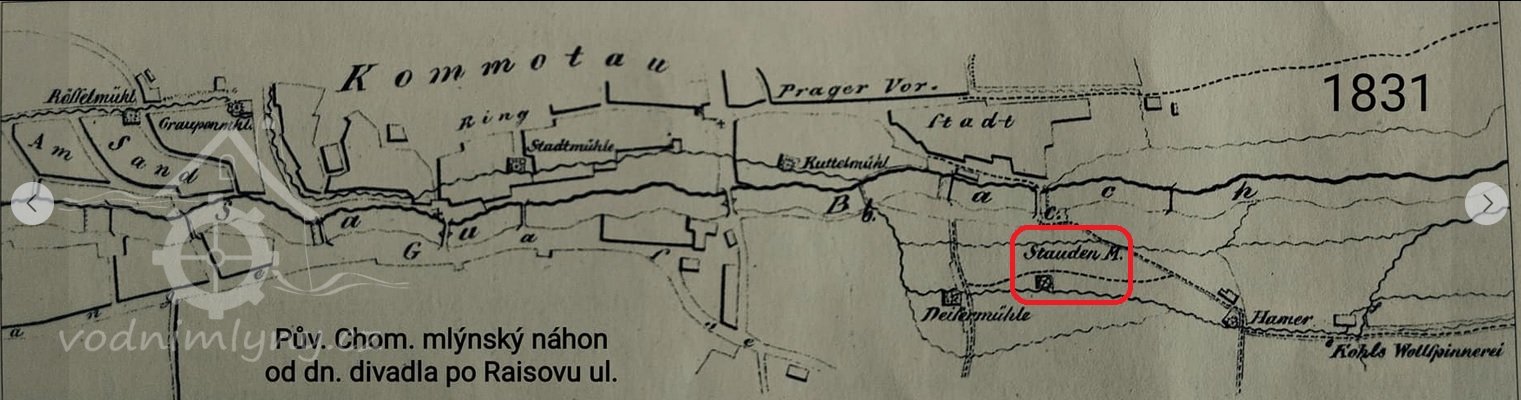 Kommotau
1831
Prager Vor.
stadt
Rösselmühl
Graupenmhl.
Am
Sand
Ring
Stadtmühle
Kuttelmühl
Bach
Stauden M.
Hamer
Kohls Wollspinnerei
vodnimlyny.cz
Pův. Chom. mlýnský náhon
od dn. divadla po Raisovu ul.